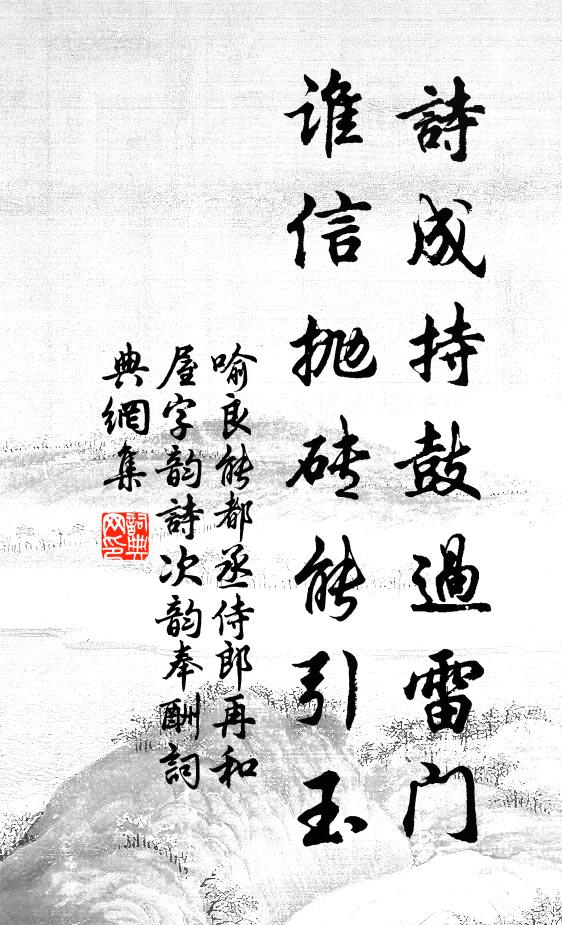 詩成持鼓過雷门
谁信抛砖能引玉
喻良能都丞侍郎再和
屋字韵詩次韵奉酬詞
典網集
詞典
网印